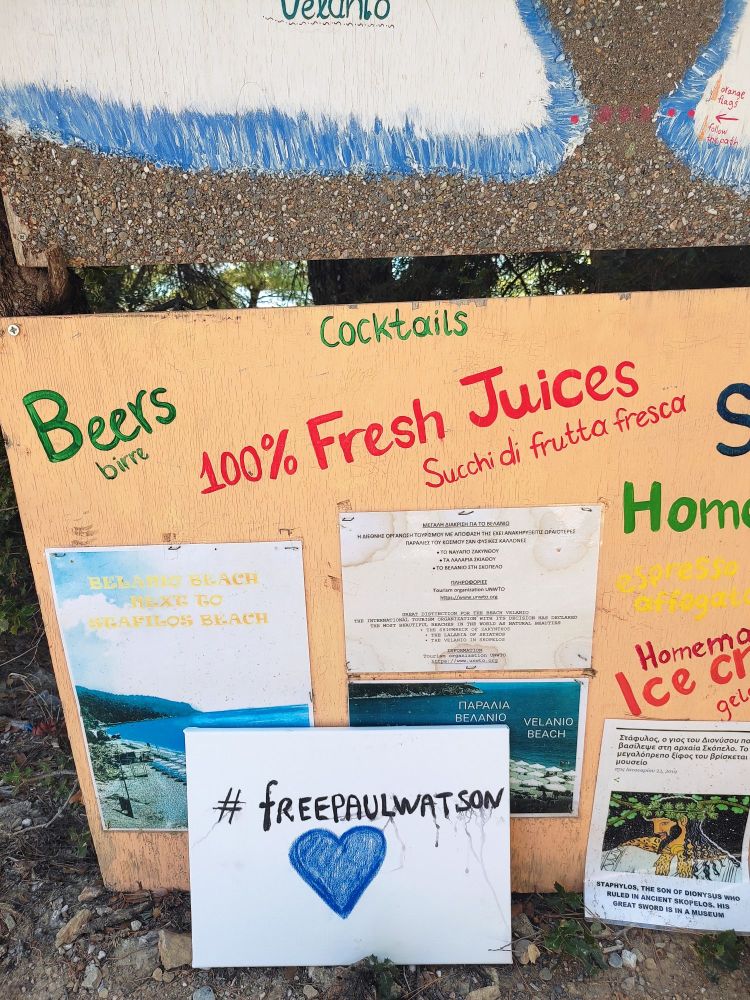 Velanio
orange
flags
follow
the path
Cocktails
Beers
birre
100% Fresh Juices
Succhi di frutta fresca
S
Home
espresso
affogato
Homema
Ice cr
gela
BELANIO BEACH
NEXT TO
STAFILOS BEACH
ΜΕΓΑΛΗ ΔΙΑΚΡΙΣΗ ΓΙΑ ΤΟ ΒΕΛΑΝΙΟ
Η ΔΙΕΘΝΗΣ ΟΡΓΑΝΩΣΗ ΤΟΥΡΙΣΜΟΥ ΜΕ ΑΠΟΦΑΣΗ ΤΗΣ ΕΧΕΙ ΑΝΑΚΗΡΥΞΕΙ ΤΙΣ ΩΡΑΙΟΤΕΡΕΣ
ΠΑΡΑΛΙΕΣ ΤΟΥ ΚΟΣΜΟΥ ΣΑΝ ΦΥΣΙΚΕΣ ΚΑΛΛΟΝΕΣ
• ΤΟ ΝΑΥΑΓΙΟ ΖΑΚΥΝΘΟΥ
• ΤΑ ΛΑΛΑΡΙΑ ΣΚΙΑΘΟΥ
• ΤΟ ΒΕΛΑΝΙΟ ΣΤΗ ΣΚΟΠΕΛΟ
ΠΛΗΡΟΦΟΡΙΕΣ
Tourism organization UNWTO
https://www.unwto.org
GREAT DISTINCTION FOR THE BEACH VELANIO
THE INTERNATIONAL TOURISM ORGANIZATION WITH ITS DECISION HAS DECLARED
THE MOST BEAUTIFUL BEACHES IN THE WORLD AS NATURAL BEAUTIES
• THE SHIPWRECK OF ZAKYNTHOS
• THE LALARIA OF SKIATHOS
• THE VELANIO IN SKOPELOS
INFORMATION
Tourism organization UNWTO
https://www.unwto.org
ΠΑΡΑΛΙΑ
ΒΕΛΑΝΙΟ
VELANIO
BEACH
# FREEPAULWATSON
Στάφυλος, ο γιος του Διονύσου πο
βασίλεψε στη αρχαία Σκόπελο. Το
μεγαλόπρεπο ξίφος του βρίσκεται
μουσείο
STAPHYLOS, THE SON OF DIONYSUS WHO
RULED IN ANCIENT SKOPELOS. HIS
GREAT SWORD IS IN A MUSEUM